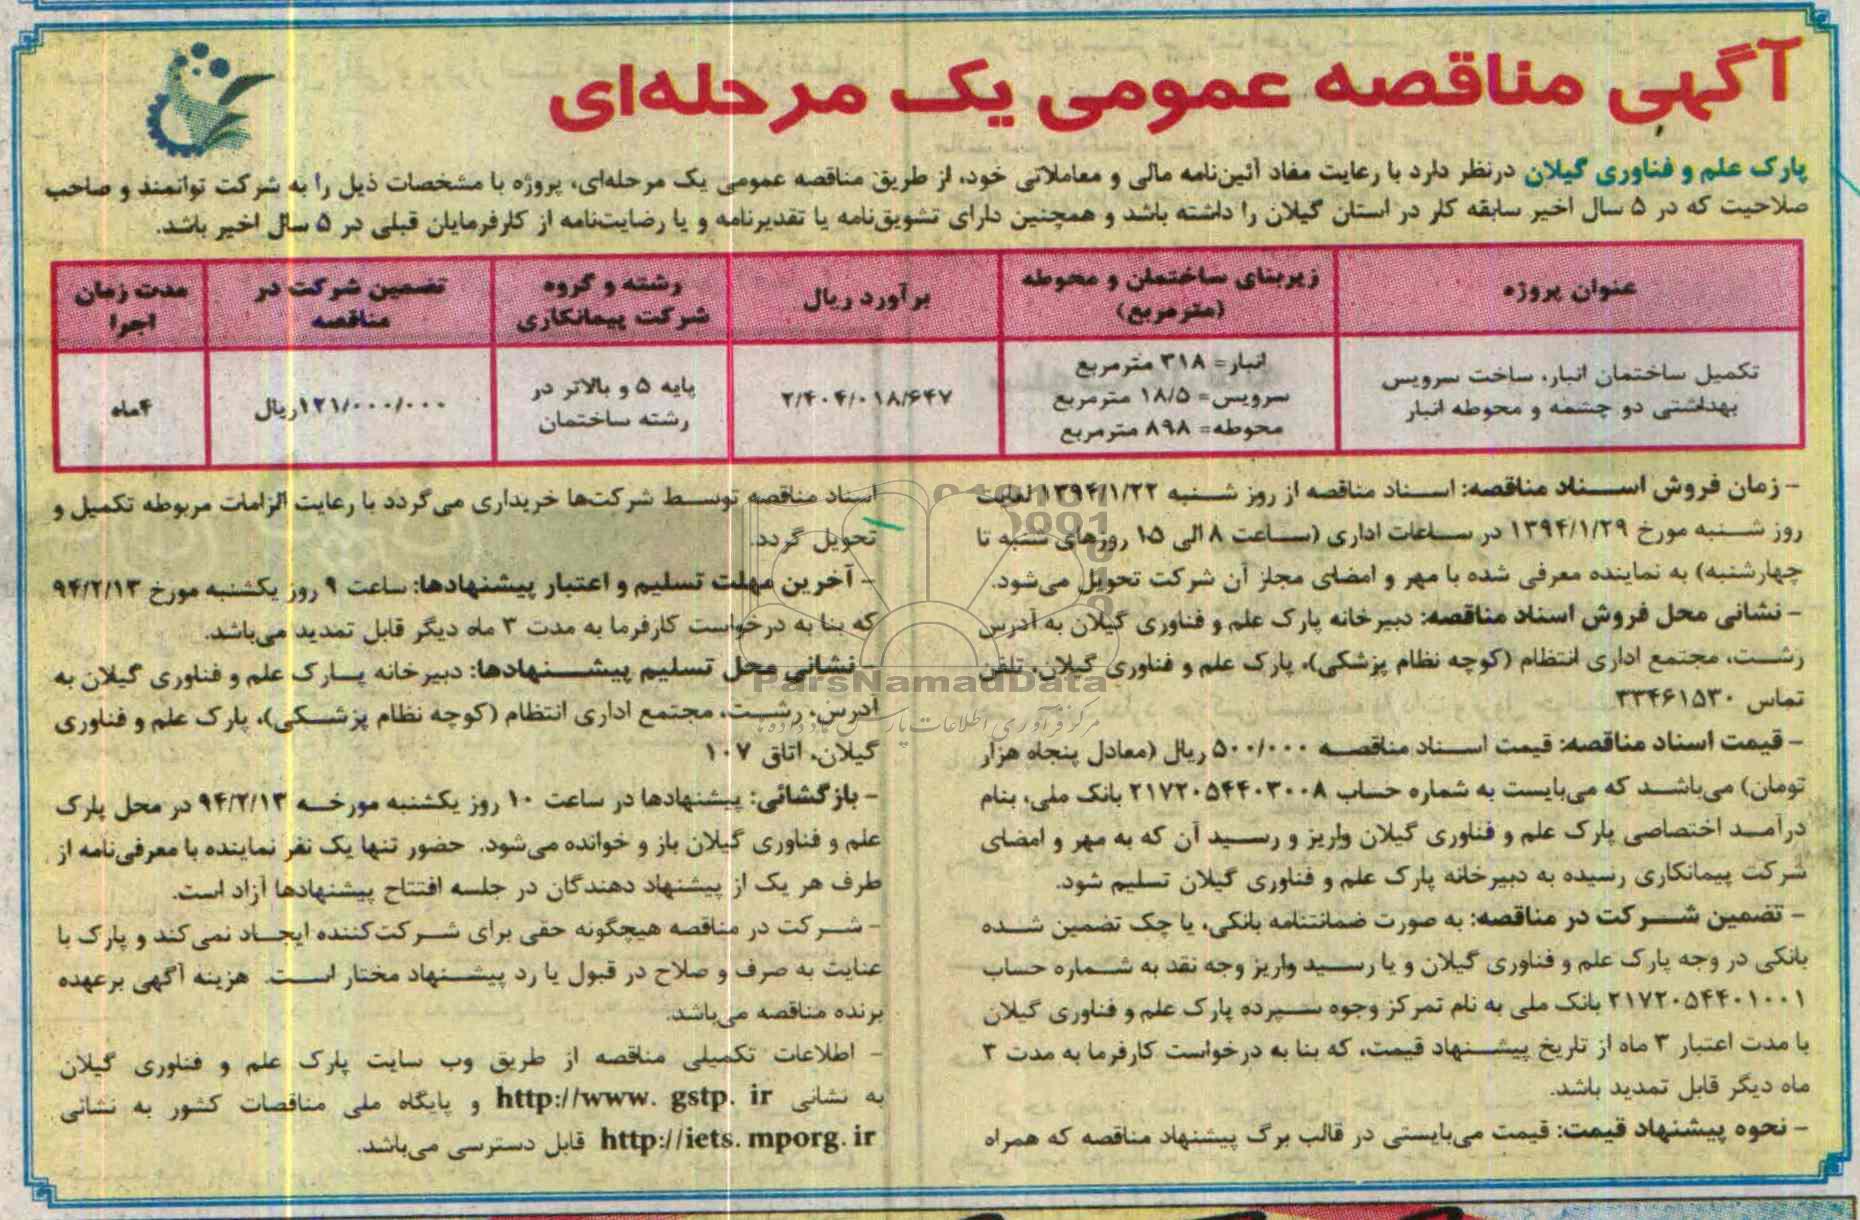 آگهی مناقصه عمومی یک مرحله‌ای
پارک علم و فناوری گیلان درنظر دارد با رعایت مفاد آئین‌نامه مالی و معاملاتی خود، از طریق مناقصه عمومی یک مرحله‌ای، پروژه با مشخصات ذیل را به شرکت توانمند و صاحب
صلاحیت که در ۵ سال اخیر سابقه کار در استان گیلان را داشته باشد و همچنین دارای تشویق‌نامه یا تقدیرنامه و یا رضایت‌نامه از کارفرمایان قبلی در ۵ سال اخیر باشد.
عنوان پروژه
زیربنای ساختمان و محوطه
(مترمربع)
برآورد ریال
رشته و گروه
شرکت پیمانکاری
تضمین شرکت در
مناقصه
مدت زمان
اجرا
تکمیل ساختمان انبار، ساخت سرویس
بهداشتی دو چشمه و محوطه انبار
انبار= ۳۱۸ مترمربع
سرویس= ۱۸/۵ مترمربع
محوطه= ۸۹۸ مترمربع
۲/۴۰۴/۰۱۸/۶۴۷
پایه ۵ و بالاتر در
رشته ساختمان
۱۲۱/۰۰۰/۰۰۰ریال
۴ماه
- زمان فروش اسناد مناقصه: اسناد مناقصه از روز شنبه ۱۳۹۴/۱/۲۲ لغایت
روز شنبه مورخ ۱۳۹۴/۱/۲۹ در ساعات اداری (ساعت ۸ الی ۱۵ روزهای شنبه تا
چهارشنبه) به نماینده معرفی شده با مهر و امضای مجاز آن شرکت تحویل می‌شود.
- نشانی محل فروش اسناد مناقصه: دبیرخانه پارک علم و فناوری گیلان به آدرس
رشت، مجتمع اداری انتظام (کوچه نظام پزشکی)، پارک علم و فناوری گیلان، تلفن
تماس ۳۳۴۶۱۵۳۰
- قیمت اسناد مناقصه: قیمت اسناد مناقصه ۵۰۰/۰۰۰ ریال (معادل پنجاه هزار
تومان) می‌باشد که می‌بایست به شماره حساب ۲۱۷۲۰۵۴۴۰۳۰۰۸ بانک ملی، بنام
درآمد اختصاصی پارک علم و فناوری گیلان واریز و رسید آن که به مهر و امضای
شرکت پیمانکاری رسیده به دبیرخانه پارک علم و فناوری گیلان تسلیم شود.
- تضمین شرکت در مناقصه: به صورت ضمانتنامه بانکی، یا چک تضمین شده
بانکی در وجه پارک علم و فناوری گیلان و یا رسید واریز وجه نقد به شماره حساب
۲۱۷۲۰۵۴۴۰۱۰۰۱ بانک ملی به نام تمرکز وجوه سپرده پارک علم و فناوری گیلان
با مدت اعتبار ۳ ماه از تاریخ پیشنهاد قیمت، که بنا به درخواست کارفرما به مدت ۳
ماه دیگر قابل تمدید باشد.
- نحوه پیشنهاد قیمت: قیمت می‌بایستی در قالب برگ پیشنهاد مناقصه که همراه
اسناد مناقصه توسط شرکت‌ها خریداری می‌گردد با رعایت الزامات مربوطه تکمیل و
تحویل گردد.
- آخرین مهلت تسلیم و اعتبار پیشنهادها: ساعت ۹ روز یکشنبه مورخ ۹۴/۲/۱۳
که بنا به درخواست کارفرما به مدت ۳ ماه دیگر قابل تمدید می‌باشد.
- نشانی محل تسلیم پیشنهادها: دبیرخانه پارک علم و فناوری گیلان به
آدرس، رشت، مجتمع اداری انتظام (کوچه نظام پزشکی)، پارک علم و فناوری
گیلان، اتاق ۱۰۷
- بازگشائی: پیشنهادها در ساعت ۱۰ روز یکشنبه مورخه ۹۴/۲/۱۳ در محل پارک
علم و فناوری گیلان باز و خوانده می‌شود. حضور تنها یک نفر نماینده با معرفی‌نامه از
طرف هر یک از پیشنهاد دهندگان در جلسه افتتاح پیشنهادها آزاد است.
- شرکت در مناقصه هیچگونه حقی برای شرکت‌کننده ایجاد نمی‌کند و پارک با
عنایت به صرف و صلاح در قبول یا رد پیشنهاد مختار است. هزینه آگهی برعهده
برنده مناقصه می‌باشد.
- اطلاعات تکمیلی مناقصه از طریق وب سایت پارک علم و فناوری گیلان
به نشانی http://www. gstp. ir و پایگاه ملی مناقصات کشور به نشانی
http://iets. mporg. ir قابل دسترسی می‌باشد.
ParsNamadData
مرکز فرآوری اطلاعات پارس نماد داده‌ها